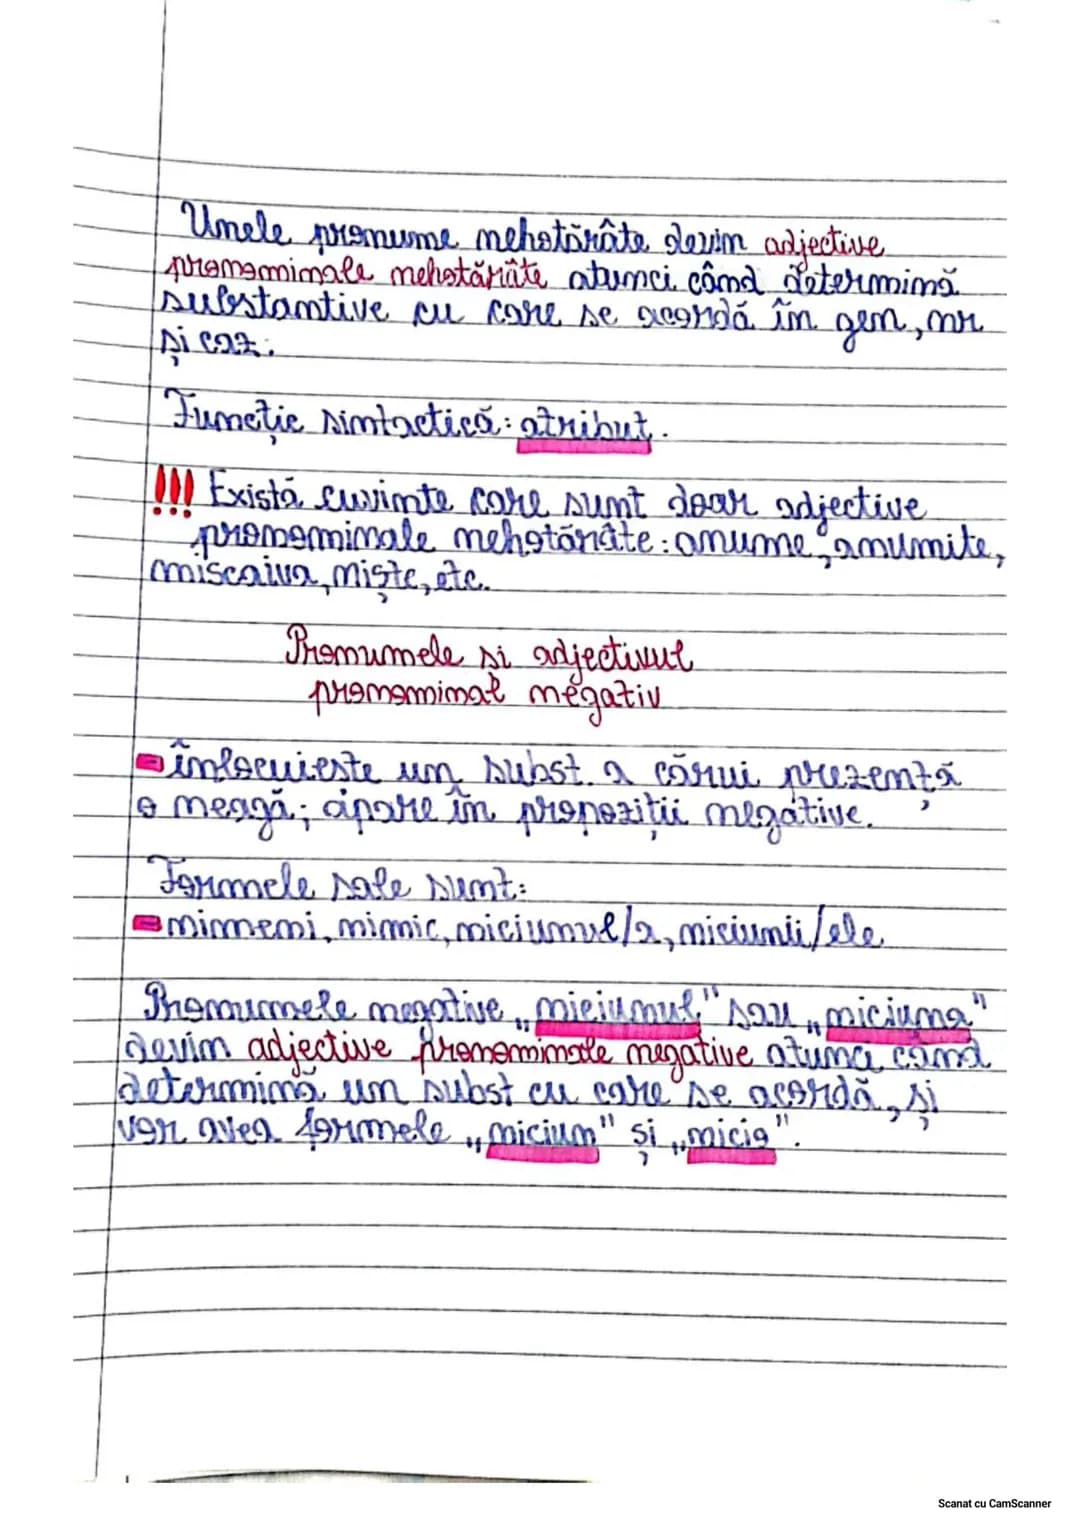 Unele pronume nehotărâte devin adjective
pronominale nehotărâte atunci când determină
substantive cu care se acordă în gen, nr
și caz.
Funcție sintactică: atribut.
!!! Există cuvinte care sunt doar adjective
pronominale nehotărâte: anume, anumite,
niscaiva, niște, etc.
Pronumele și adjectivul
pronominal negativ
- înlocuiește un subst. a cărui prezență
o neagă; apare în propoziții negative.
Formele sale sunt:
- nimeni, nimic, niciunul/a, niciunii/ele.
Pronumele negative „niciunul" sau „niciuna"
devin adjective pronominale negative atunci când
determină un subst cu care se acordă, și
vor avea formele „niciun" și „nicio".
Scanat cu CamScanner